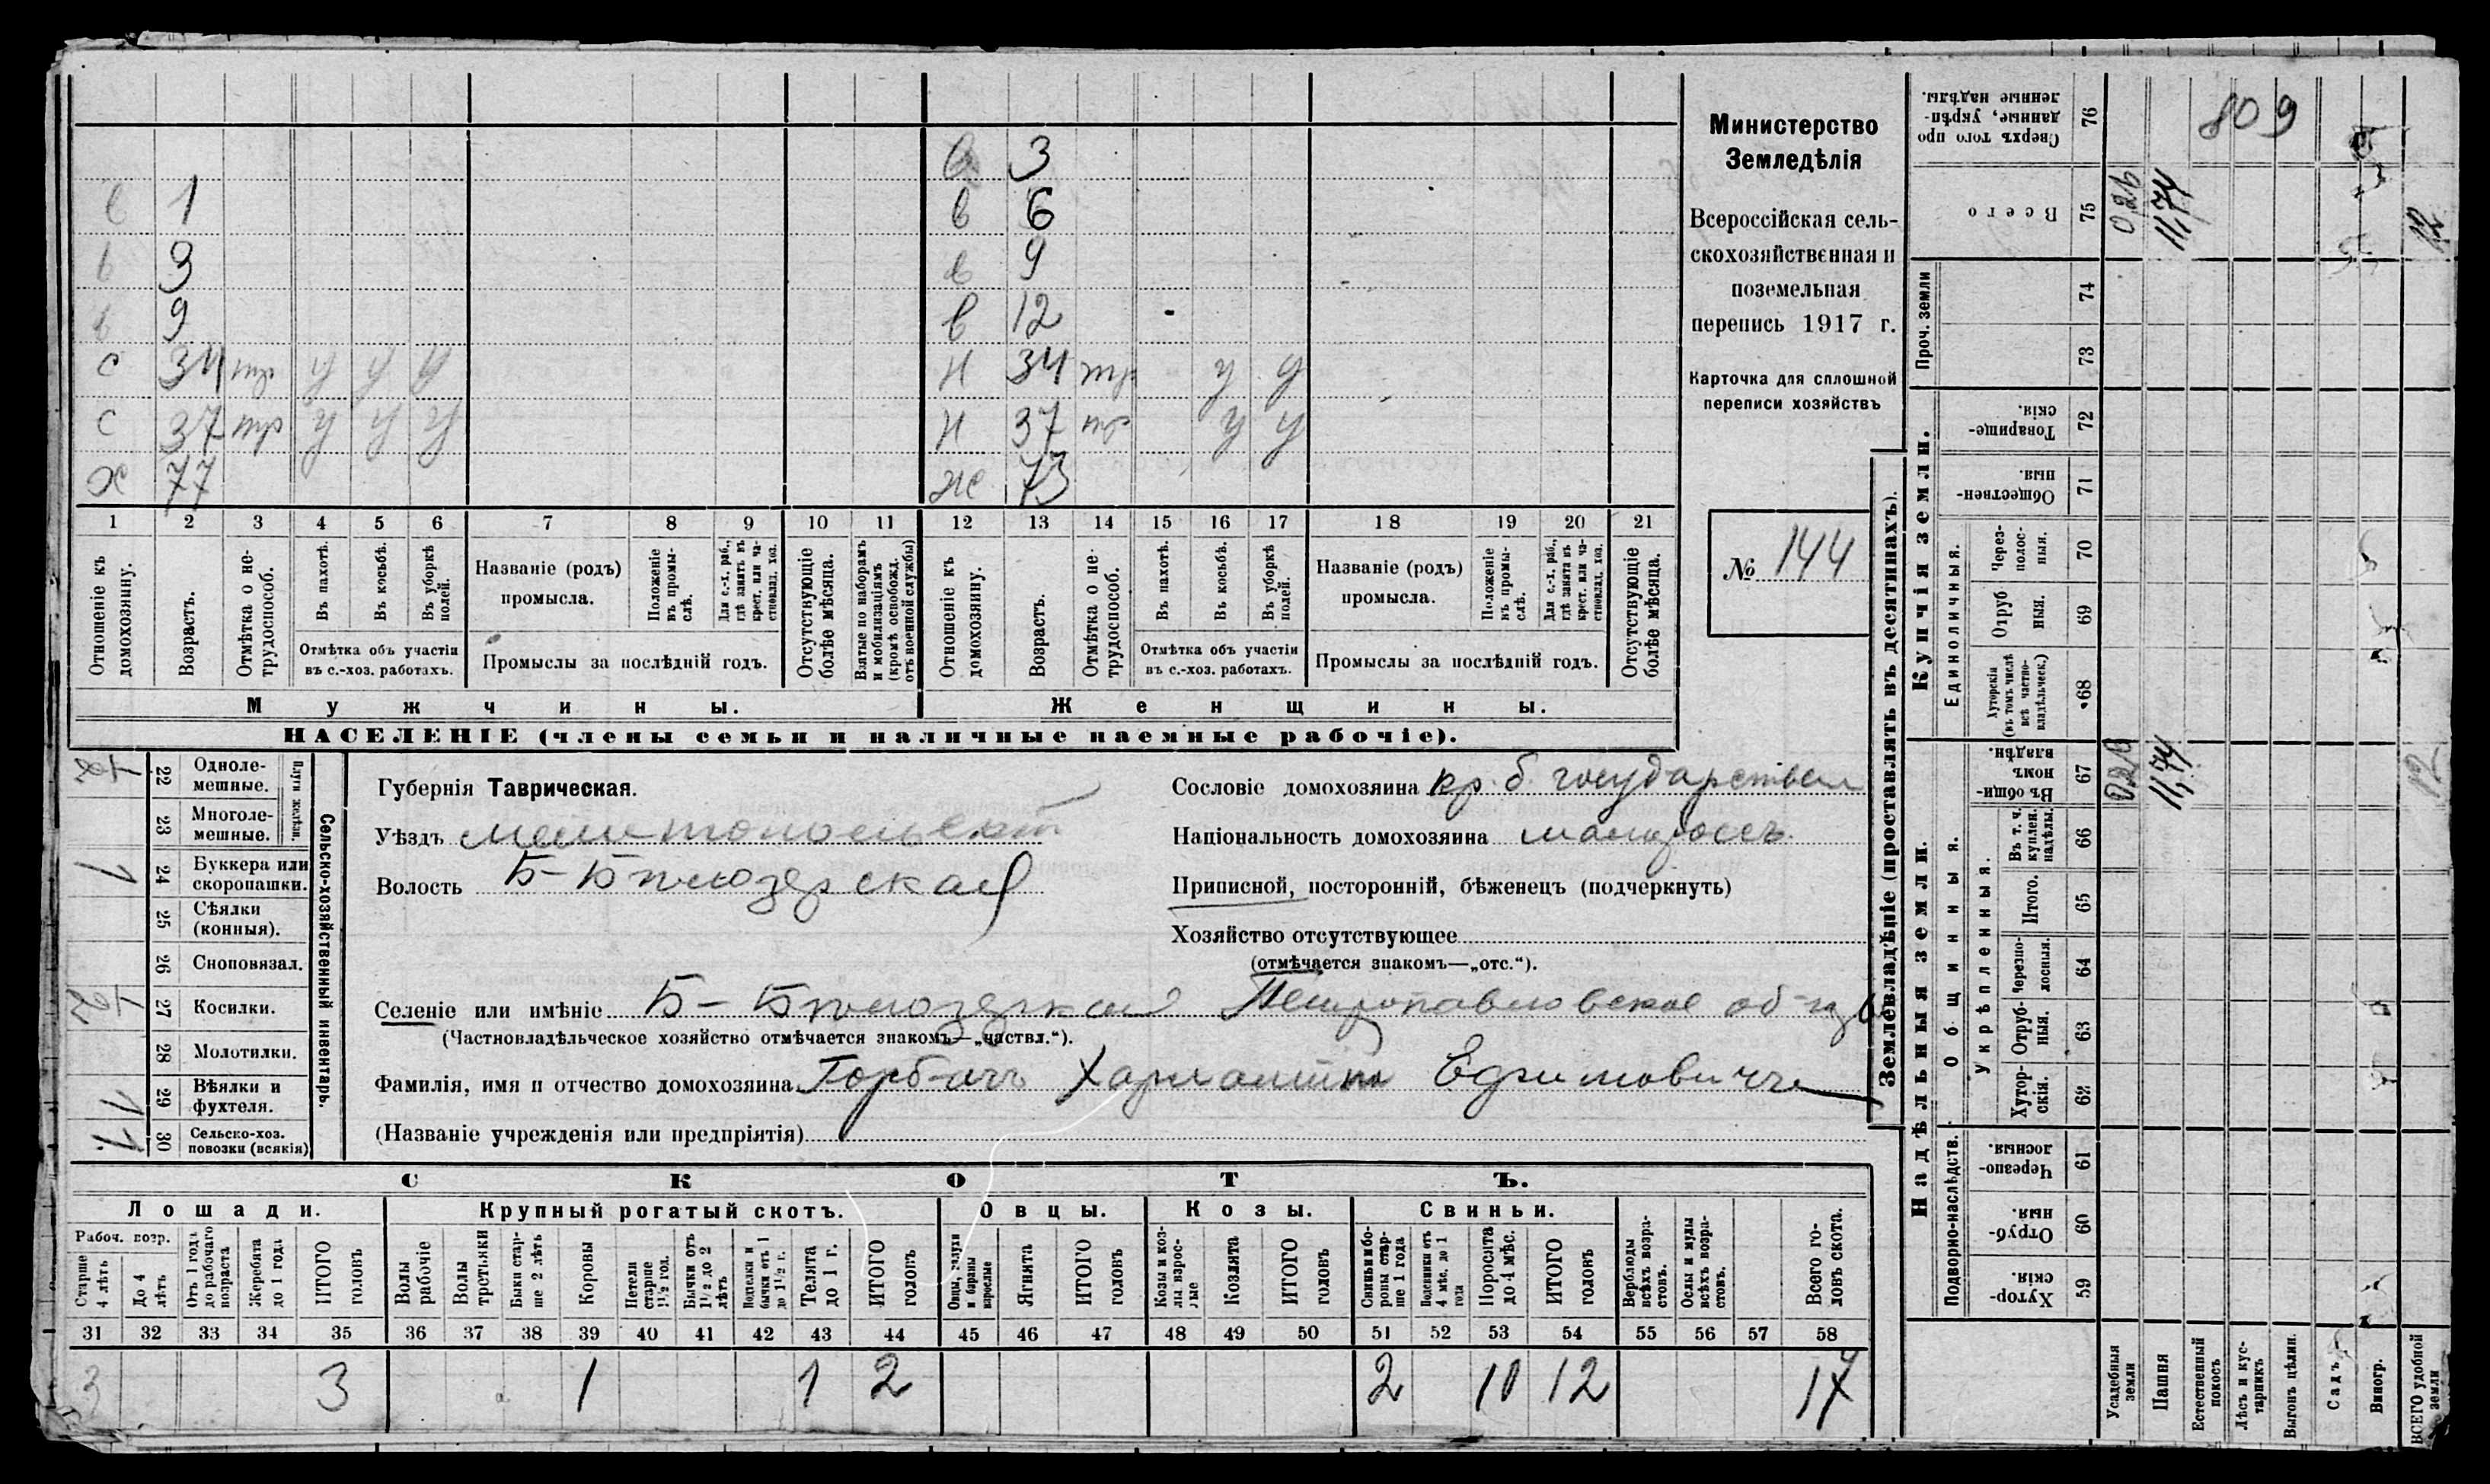 в 3
в 1 в 6
в 3 в 9
в 9 в 12
с 34 тр у у у н 34 тр у у
с 37 тр у у у н 37 тр у у
х 77 ж 73
1 2 3 4 5 6 7 8 9 10 11 12 13 14 15 16 17 18 19 20 21
Отношеніе къ домохозяину.
Возрастъ.
Отмѣтка о нетрудоспособ.
Въ пахотѣ.
Въ косьбѣ.
Въ уборкѣ полей.
Отмѣтка объ участіи
въ с.-хоз. работахъ.
Названіе (родъ)
промысла.
Положеніе въ промыслѣ.
Для с.-х. раб., гдѣ занятъ въ крест. или частновлад. хоз.
Промыслы за послѣдній годъ.
Отсутствующіе болѣе мѣсяца.
Взятые по наборамъ и мобилизаціямъ (кромѣ освобожд. отъ военной службы)
Отношеніе къ домохозяину.
Возрастъ.
Отмѣтка о нетрудоспособ.
Въ пахотѣ.
Въ косьбѣ.
Въ уборкѣ полей.
Отмѣтка объ участіи
въ с.-хоз. работахъ.
Названіе (родъ)
промысла.
Положеніе въ промыслѣ.
Для с.-х. раб., гдѣ занята въ крест. или частновлад. хоз.
Промыслы за послѣдній годъ.
Отсутствующіе болѣе мѣсяца.
Мужчины. Женщины.
НАСЕЛЕНІЕ (члены семьи и наличные наемные рабочіе).
Министерство
Земледѣлія
Всероссійская сель-
скохозяйственная и
поземельная
перепись 1917 г.
Карточка для сплошной
переписи хозяйствъ
№ 144
Сельско-хозяйственный инвентарь.
Плуги желѣзн.
22 Одноле-
мешные.
23 Многоле-
мешные.
1 24 Буккера или
скоропашки.
25 Сѣялки
(конныя).
26 Сноповязал.
1/2 27 Косилки.
28 Молотилки.
1 29 Вѣялки и
фухтеля.
1 30 Сельско-хоз.
повозки (всякія)
Губернія Таврическая.
Уѣздъ Мелитопольскій
Волость Б-Бѣлозерская
Сословіе домохозяина кр. б. государствен
Національность домохозяина малороссъ.
Приписной, посторонній, бѣженецъ (подчеркнуть)
Хозяйство отсутствующее
(отмѣчается знакомъ—„отс.“).
Селеніе или имѣніе Б-Бѣлозерка Петропавловское об-во
(Частновладѣльческое хозяйство отмѣчается знакомъ—„частвл.“).
Фамилія, имя и отчество домохозяина Горбачъ Харлампій Ефимовичъ
(Названіе учрежденія или предпріятія)
СКОТЪ.
Лошади. Крупный рогатый скотъ. Овцы. Козы. Свиньи.
Рабоч. возр.
Старше 4 лѣтъ
До 4 лѣтъ
Отъ 1 года до рабочаго возраста
Жеребята до 1 года
ИТОГО головъ
Волы рабочіе
Волы третьяки
Быки старше 2 лѣтъ
Коровы
Нетели старше 1½ год.
Бычки отъ 1½ до 2 лѣтъ
Подтелки и бычки отъ 1 до 1½ г.
Телята до 1 г.
ИТОГО головъ
Овцы, валухи и бараны взрослые
Ягнята
ИТОГО головъ
Козы и козлы взрослые
Козлята
ИТОГО головъ
Свиньи и боровы старше 1 года
Подсвинки отъ 4 мѣс. до 1 года
Поросята до 4 мѣс.
ИТОГО головъ
Верблюды всѣхъ возрастовъ.
Ослы и мулы всѣхъ возрастовъ.
Всего головъ скота.
31 32 33 34 35 36 37 38 39 40 41 42 43 44 45 46 47 48 49 50 51 52 53 54 55 56 57 58
3 3 1 1 2 2 10 12 17
Землевладѣніе (проставлять въ десятинахъ).
Купчія земли.
Надѣльныя земли.
Проч. земли
Единоличныя.
Общинныя.
Укрѣпленныя.
Подворно-наслѣдств.
76 Сверхъ того проданные, укрѣпленные надѣлы. 809
75 Всего 0,26 11,74 12
74
73
72 Товарищескія.
71 Общественныя.
70 Черезполосныя.
69 Отрубныя.
68 Хуторскія (въ томъ числѣ всѣ частновладѣльческ.)
67 Въ общинномъ владѣн. 0,26 11,74 12
66 Въ т. ч. куплен. надѣлы.
65 Итого.
64 Черезполосныя.
63 Отрубныя.
62 Хуторскія.
61 Черезполосныя.
60 Отрубныя.
59 Хуторскія.
Усадебныя земли
Пашня
Естественный покосъ
Лѣсъ и кустарникъ
Выгонъ цѣлин.
Садъ.
Виногр.
ВСЕГО удобной земли